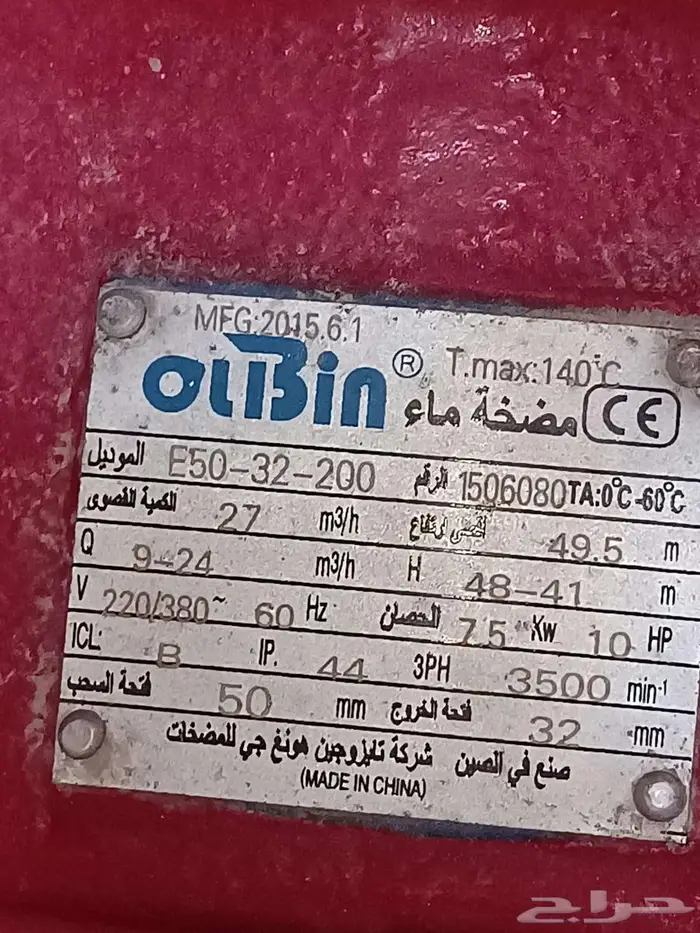 MFG:2015.6.1
OLBin ® T.max:140°C
مضخة ماء CE
الموديل E50-32-200 الرقم 1506080 TA:0°C-60°C
الكمية القصوى 27 m3/h أقصى ارتفاع 49.5 m
Q 9-24 m3/h H 48-41 m
V 220/380~ 60 Hz الحصان 7.5 Kw 10 HP
ICL: B IP. 44 3PH 3500 min-1
فتحة السحب 50 mm فتحة الخروج 32 mm
صنع في الصين شركة تايزوجين هونغ جي للمضخات
(MADE IN CHINA)
حراج